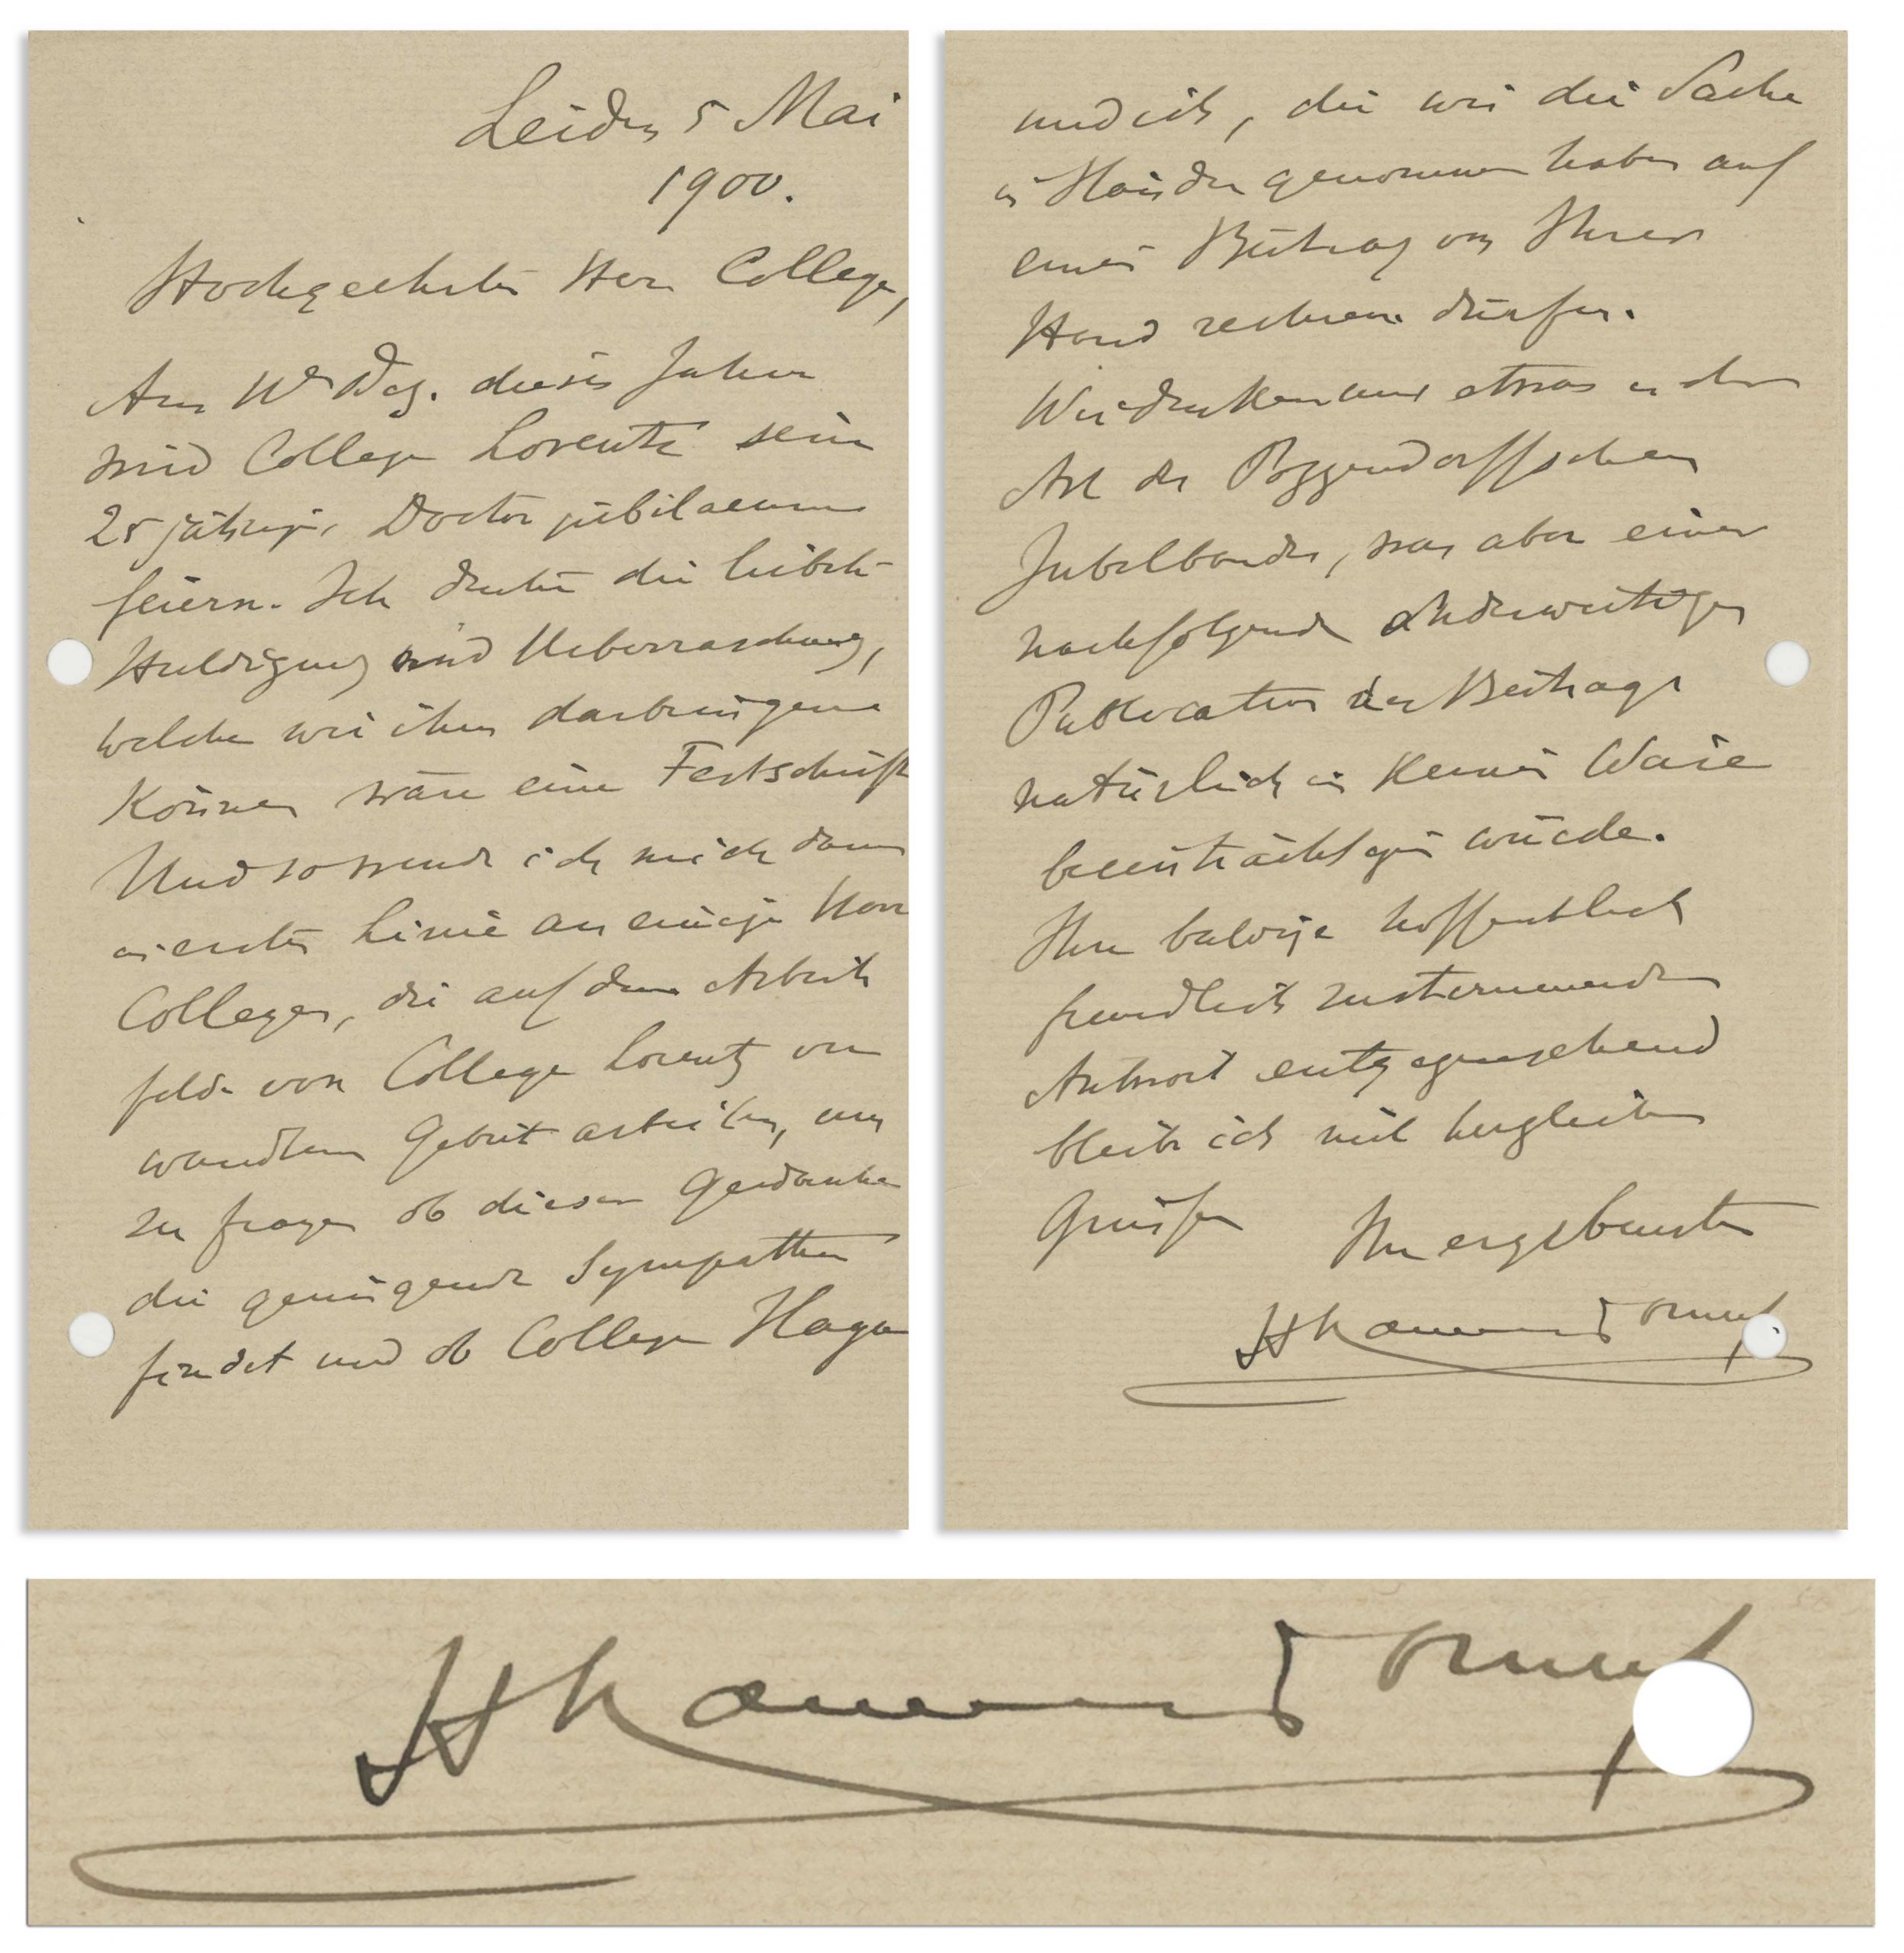 Leiden 5 Mai
1900.
Hochgeehrter Herr College,
Am 11 Dez. dieses Jahres
wird College Lorentz sein
25 jährige Doctor jubilaeum
feiern. Ich denke die liebste
Huldigung und Ueberraschung,
welche wir ihm darbringen
können wäre eine Festschrift
Und so wende ich mich dann
in erster Linie an einige Herrn
Collegen, die auf dem Arbeits
felde von College Lorentz ver
wandtem Gebiet arbeiten, um
zu fragen ob dieser Gedanke
die genügende Sympathie
findet und ob College Haga
und ich, die wir die Sache
in Händen genommen haben auf
einen Beitrag von Ihrer
Hand rechnen dürfen.
Wir denken uns etwas in der
Art des Poggendorffschen
Jubelbandes, was aber einer
nachfolgende anderweitigen
Publication der Beitrage
natürlich in keiner Weise
beeinträchtigen würde.
Ihre baldige hoffentlich
freundlich zustimmende
Antwort entgegensehend
bleibe ich mit herzlichen
Grüssen Ihr ergebenster
H Kamerlingh Onnes
H Kamerlingh Onnes